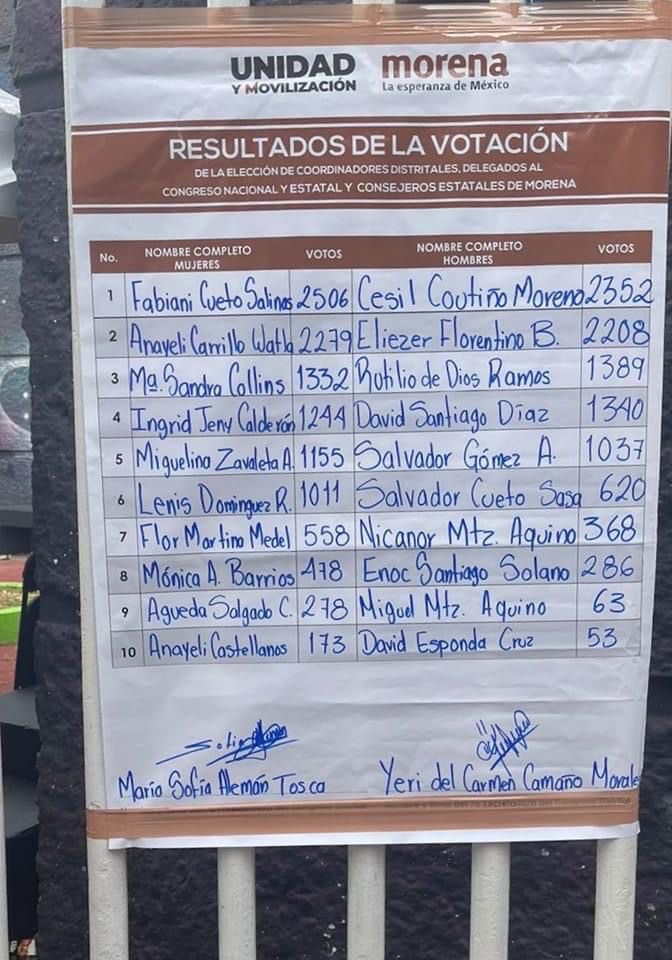 UNIDAD
Y MOVILIZACIÓN
morena
La esperanza de México
RESULTADOS DE LA VOTACIÓN
DE LA ELECCIÓN DE COORDINADORES DISTRITALES, DELEGADOS AL
CONGRESO NACIONAL Y ESTATAL Y CONSEJEROS ESTATALES DE MORENA
No. NOMBRE COMPLETO MUJERES VOTOS NOMBRE COMPLETO HOMBRES VOTOS
1 Fabiani Cueto Salinas 2506 Cesil Coutiño Moreno 2352
2 Anayeli Carrillo 2279 Eliezer Florentino B. 2208
3 Ma. Sandra Collins 1332 Rutilio de Dios Ramos 1389
4 Ingrid Jeny Calderón 1244 David Santiago Díaz 1340
5 Miguelina Zavaleta A. 1155 Salvador Gómez A. 1037
6 Lenis Dominguez R. 1011 Salvador Cueto Sosa 620
7 Flor Martino Medel 558 Nicanor Mtz. Aquino 368
8 Mónica A. Barrios 478 Enoc Santiago Solano 286
9 Agueda Salgado C. 278 Miguel Mtz. Aquino 63
10 Anayeli Castellanos 173 David Esponda Cruz 53
María Sofía Alemán Tosca Yeri del Carmen Camaño Morales